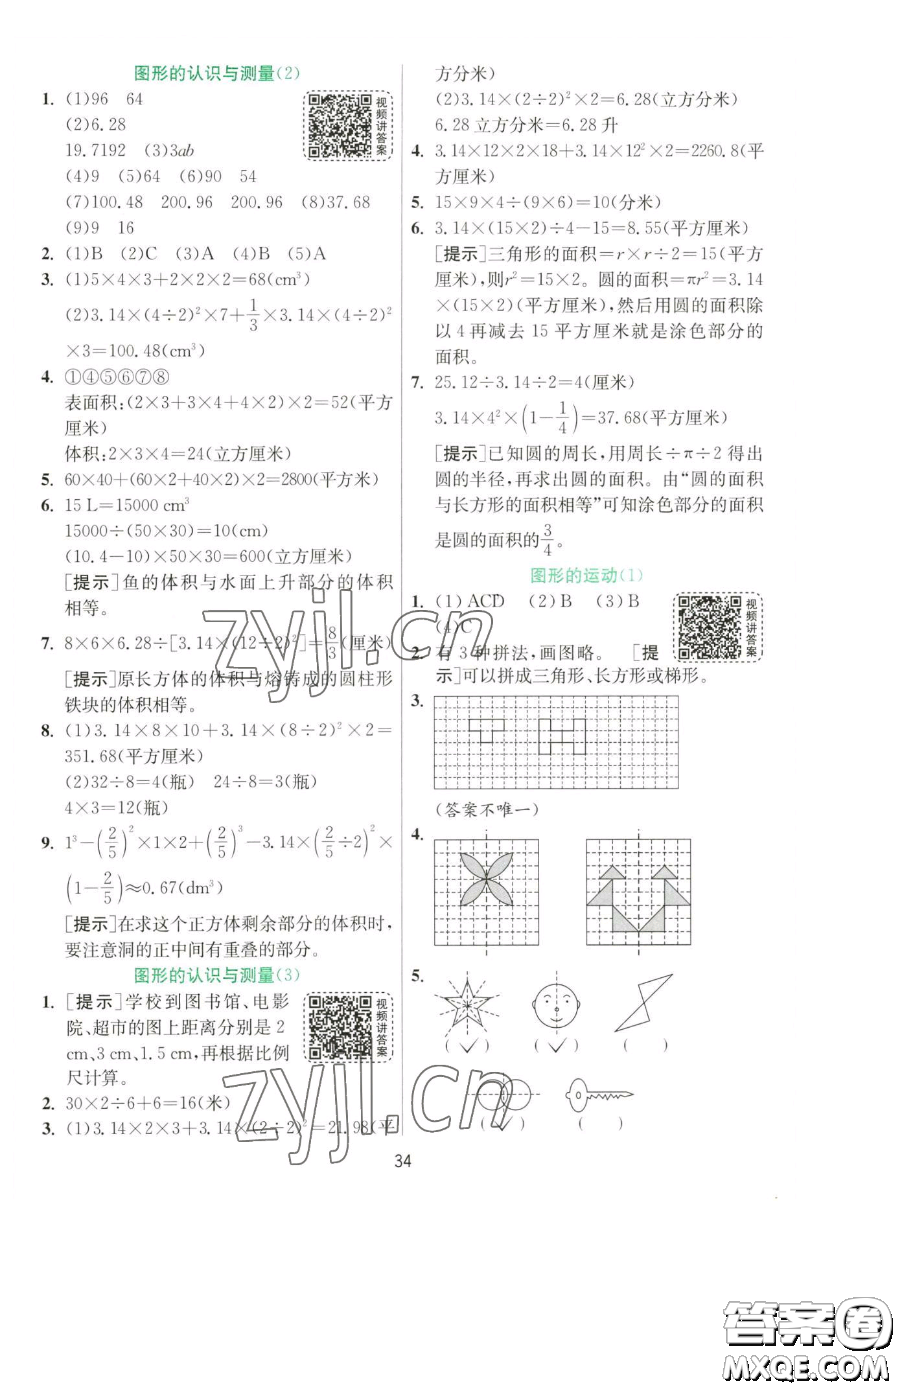 图形的认识与测量(2)
1. (1)96 64
(2)6.28
19.7192 (3)3ab
(4)9 (5)64 (6)90 54
(7)100.48 200.96 200.96 (8)37.68
(9)9 16
视频讲答案
2. (1)B (2)C (3)A (4)B (5)A
3. (1)5×4×3+2×2×2=68(cm³)
(2)3.14×(4÷2)²×7+1/3×3.14×(4÷2)²
×3=100.48(cm³)
4. ①④⑤⑥⑦⑧
表面积:(2×3+3×4+4×2)×2=52(平方
厘米)
体积:2×3×4=24(立方厘米)
5. 60×40+(60×2+40×2)×2=2800(平方米)
6. 15 L=15000 cm³
15000÷(50×30)=10(cm)
(10.4-10)×50×30=600(立方厘米)
[提示]鱼的体积与水面上升部分的体积
相等。
7. 8×6×6.28÷[3.14×(12÷2)²]=8/3(厘米)
[提示]原长方体的体积与熔铸成的圆柱形
铁块的体积相等。
8. (1)3.14×8×10+3.14×(8÷2)²×2=
351.68(平方厘米)
(2)32÷8=4(瓶) 24÷8=3(瓶)
4×3=12(瓶)
9. 1³-(2/5)²×1×2+(2/5)³-3.14×(2/5÷2)²×
(1-2/5)≈0.67(dm³)
[提示]在求这个正方体剩余部分的体积时,
要注意洞的正中间有重叠的部分。
图形的认识与测量(3)
1. [提示]学校到图书馆、电影
院、超市的图上距离分别是2
cm、3 cm、1.5 cm,再根据比例
尺计算。
视频讲答案
2. 30×2÷6+6=16(米)
3. (1)3.14×2×3+3.14×(2÷2)²=21.98(平
方分米)
(2)3.14×(2÷2)²×2=6.28(立方分米)
6.28立方分米=6.28升
4. 3.14×12×2×18+3.14×12²×2=2260.8(平
方厘米)
5. 15×9×4÷(9×6)=10(分米)
6. 3.14×(15×2)÷4-15=8.55(平方厘米)
[提示]三角形的面积=r×r÷2=15(平方
厘米),则r²=15×2。圆的面积=πr²=3.14
×(15×2)(平方厘米),然后用圆的面积除
以4再减去15平方厘米就是涂色部分的
面积。
7. 25.12÷3.14÷2=4(厘米)
3.14×4²×(1-1/4)=37.68(平方厘米)
[提示]已知圆的周长,用周长÷π÷2得出
圆的半径,再求出圆的面积。由“圆的面积
与长方形的面积相等”可知涂色部分的面积
是圆的面积的3/4。
图形的运动(1)
1. (1)ACD (2)B (3)B
(4)C
视频讲答案
2. 有3种拼法,画图略。 [提
示]可以拼成三角形、长方形或梯形。
3.
(答案不唯一)
4.
5.
(✓) (✓) ( )
(✓) ( )
34
zyjl.cn
zyjl.cn
答案圈
MXQE.COM